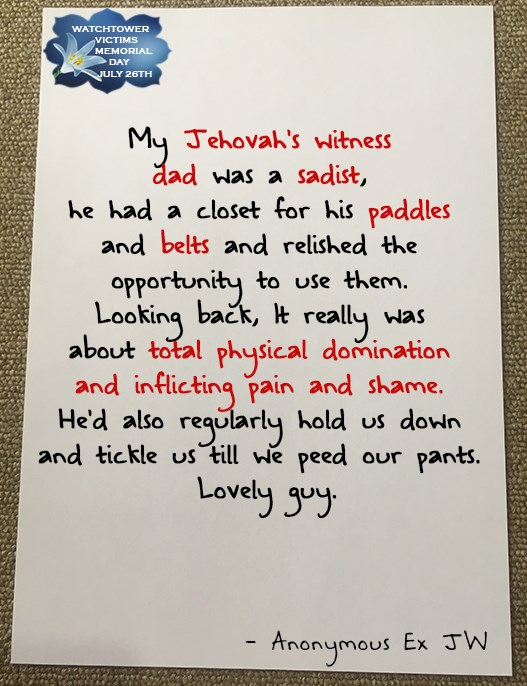 WATCHTOWER
VICTIMS
MEMORIAL
DAY
JULY 26TH
My Jehovah's witness
dad was a sadist,
he had a closet for his paddles
and belts and relished the
opportunity to use them.
Looking back, It really was
about total physical domination
and inflicting pain and shame.
He'd also regularly hold us down
and tickle us till we peed our pants.
Lovely guy.
- Anonymous Ex JW